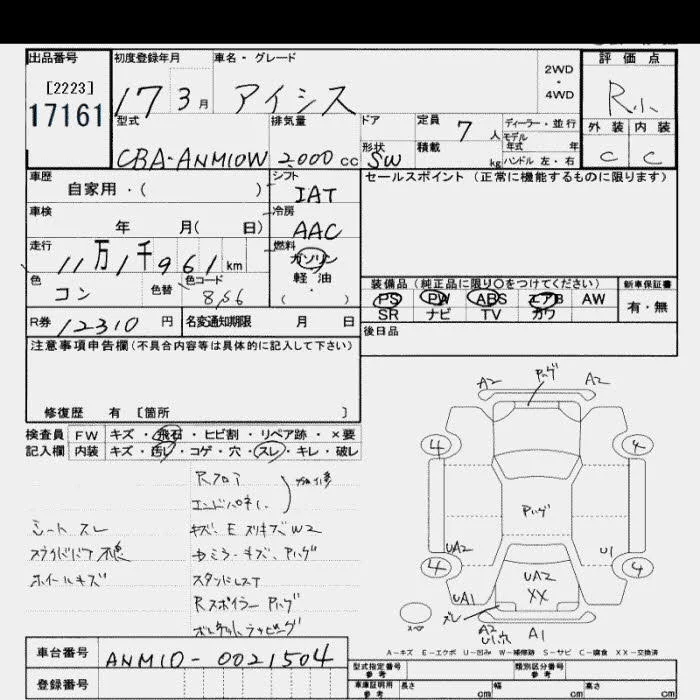 出品番号 初度登録年月 車名・グレード 2WD・4WD 評価点
[2223]
17161
17 3月 アイシス R小
型式 排気量 ドア 定員 7人 ディーラー・並行 外装 内装
モデル年式 年
CBA-ANM10W 2000cc 形状 SW 積載 kg ハンドル 左・右 C C
車歴 シフト セールスポイント (正常に機能するものに限ります)
自家用・( ) IAT
車検 冷房
年 月( 日) AAC
走行 燃料
11万1千961km ガソリン
色 色替 色コード 軽油
コン 8S6 ( ・ )
装備品 (純正品に限り〇をつけてください) 新車保証書
PS PW ABS エアB AW 有・無
SR ナビ TV カワ
R券 12310円 名変通知期限 月 日
後日品
注意事項申告欄 (不具合内容等は具体的に記入して下さい)
修復歴 有 [箇所 ]
検査員 FW キズ・飛石・ヒビ割・リペア跡・×要
記入欄 内装 キズ・汚レ・コゲ・穴・スレ・キレ・破レ
Rフロア
エンドパネル
シート スレ
キズ、E スリキズW2
ホイールキズ
スタンドレスT
Rスポイラー
A2 A2
4 4
UA2 U1
4 4
UA2
XX
UA1
A2
A1
A-キズ E-エクボ U-凹み W-補修跡 S-サビ C-腐食 XX-交換済
車台番号 ANM10-0021504
登録番号
型式指定番号 類別区分番号
参考
車庫証明用 長さ 幅 高さ
参考 cm cm cm